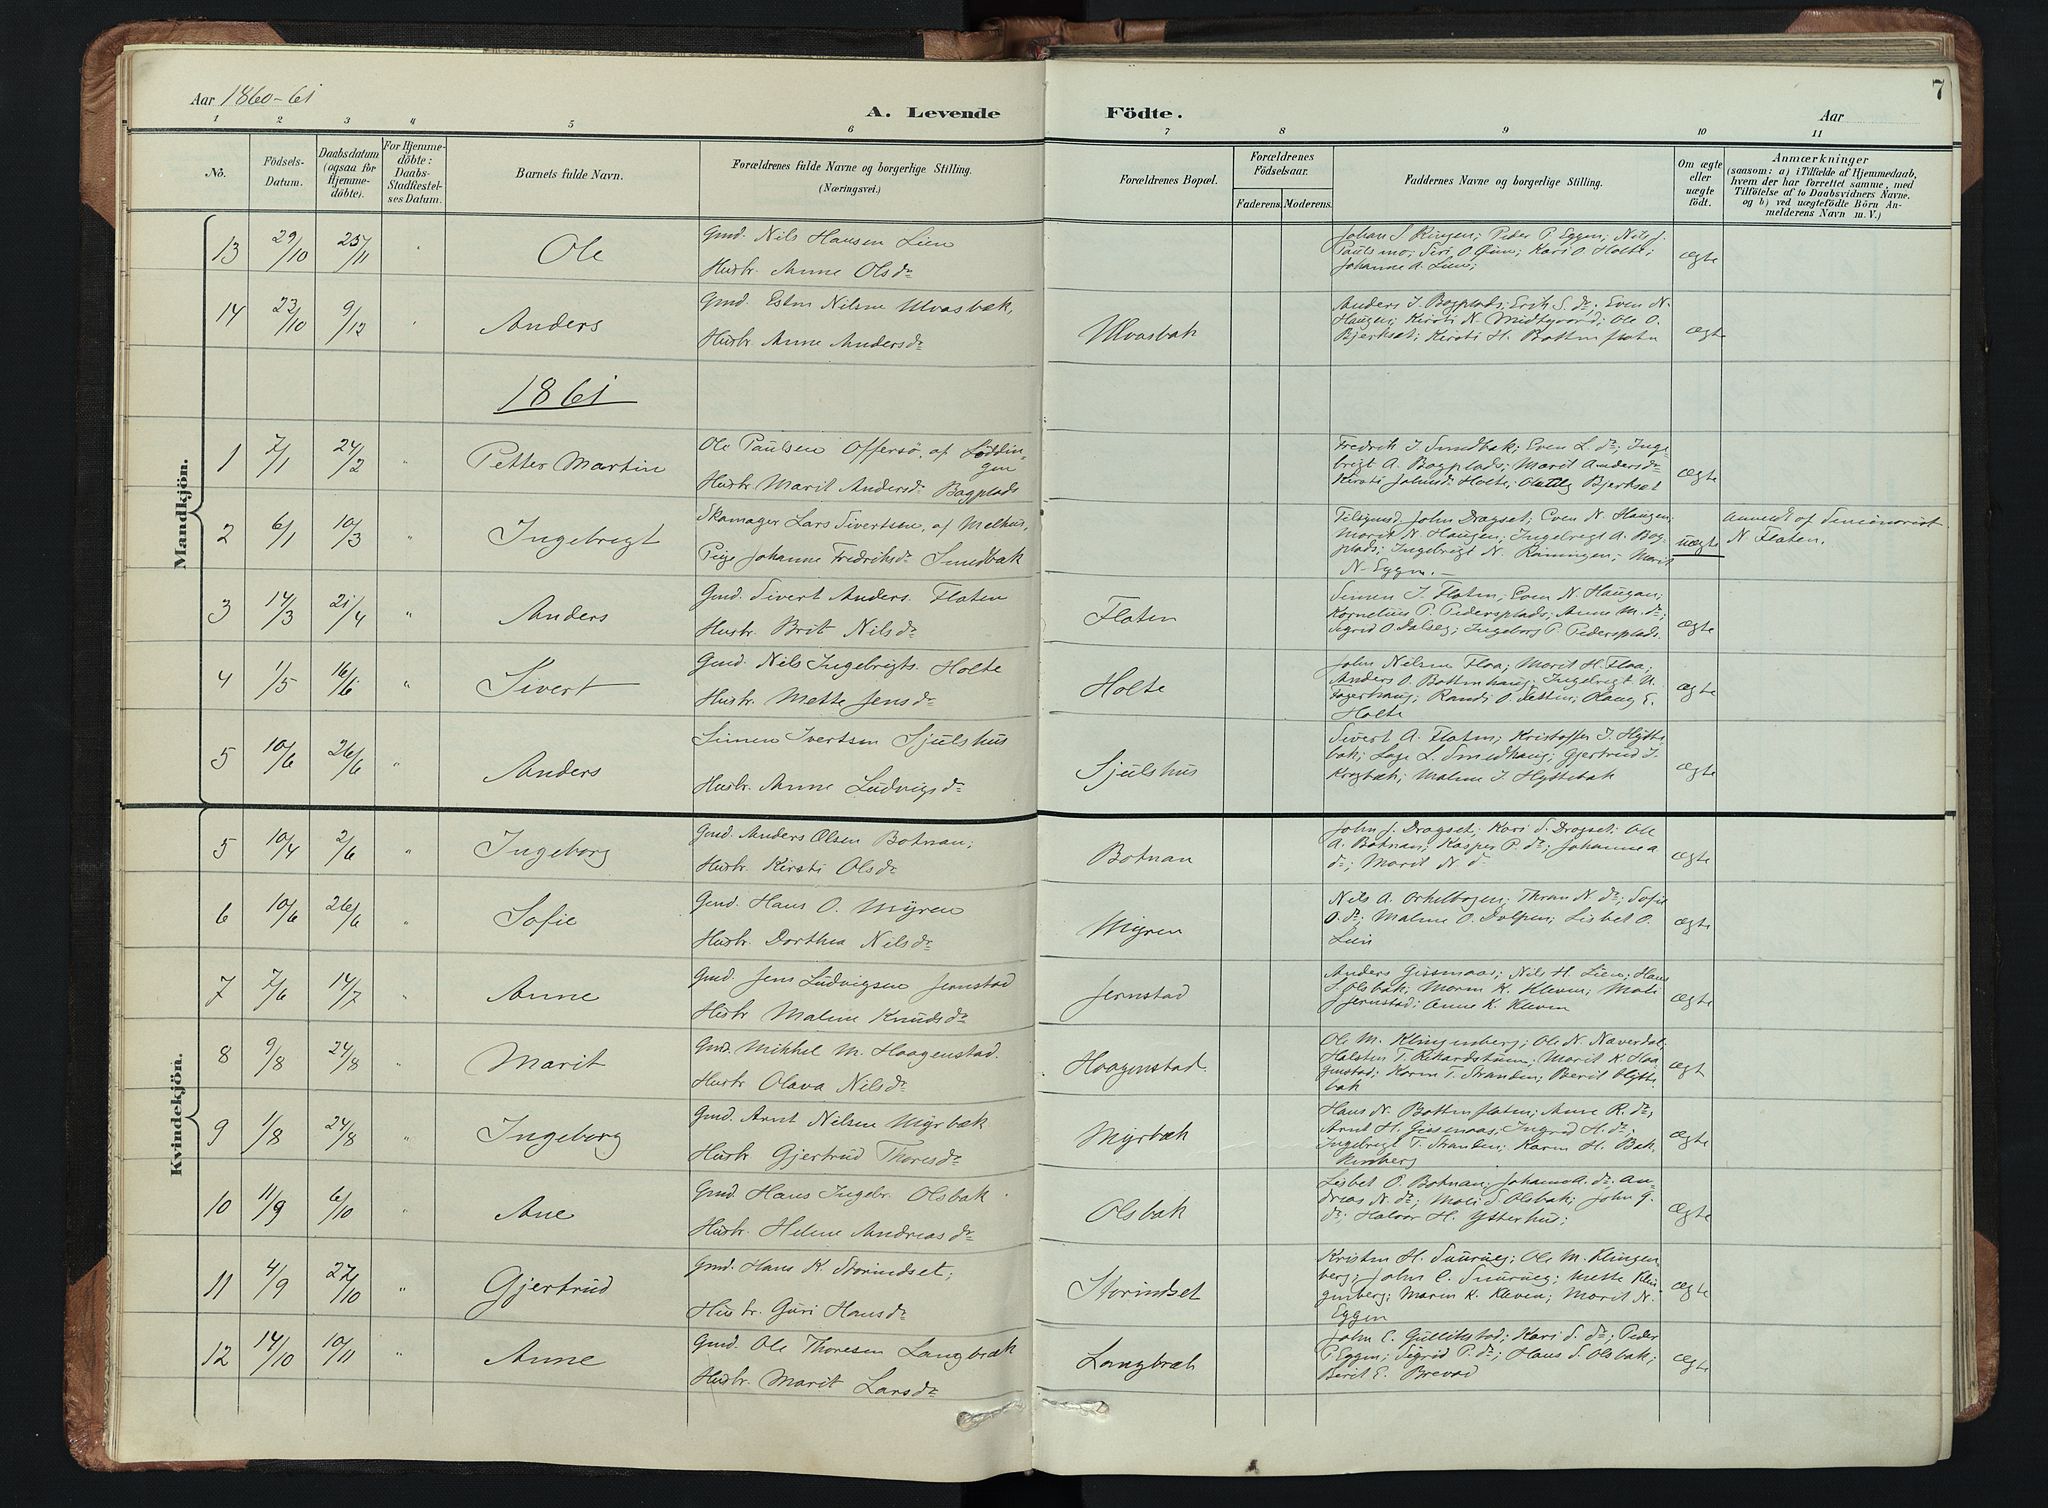 Aar 1860-61
A. Levende Födte.
Aar
7
1 2 3 4 5 6 7 8 9 10 11
No.
Födsels-Datum.
Daabsdatum (ogsaa for Hjemme-döbte).
For Hjemme-döbte: Daabs-Stadfæstel-ses Datum.
Barnets fulde Navn.
Forældrenes fulde Navne og borgerlige Stilling. (Næringsvei.)
Forældrenes Bopæl.
Forældrenes Födselsaar.
Faderens. Moderens.
Faddernes Navne og borgerlige Stilling.
Om ægte eller uægte födt.
Anmærkninger
(saasom: a) i Tilfælde af Hjemmedaab,
hvem der har forrettet samme, med
Tilföielse af to Daabsvidners Navne.
og b) ved uægtefödte Börn An-
melderens Navn m. V.)
Mandkjön.
13 29/10 25/11 " Ole
Gmd. Nils Hansen Lien
Husbr. Anne Olsdr
Johan S. Ringen; Peder P. Eggen; Nils J.
Paulsmo; Siri O. Lien; Kari O. Holte;
Johanne A. Lien;
Ægte
14 22/10 9/12 " Anders
Gmd. Esten Nilsen Ulvasbæk,
Husbr. Anne Andersdr
Ulvasbak
Anders J. Bagplads; Erik S. dr; Even N.
Haugen; Kirsti N. Midtgaard; Ole O.
Bjerkset; Kirsti H. Bottenfloten
Ægte
1861
1 7/1 24/2 " Petter Martin
Ole Paulsen Offersø, af Løddin-
gen
Husbr. Marit Andersdr Bagplads
Fredrik J. Smedbak; Even L. dr; Inge-
brigt A. Bagplads; Marit Andersdr
Kirsti Johnsdr Holte; Bjerkset
Ægte
2 6/1 10/3 " Ingebrigt
Skomager Lars Sivertsen, af Melhus,
Pige Johanne Fredriksdr Smedbæk
John Dragset; Even N. Haugen;
Marit N. Haugen; Ingebrigt A. Bag-
plads; Ingebrigt N. Rønningen; Marit
N. Eggen.-
uægte
Anmeldt af Seminarist
N. Floten.
3 14/3 21/4 " Anders
Gmd. Sivert Anders. Floten
Husbr. Brit Nilsdr
Floten
Simen J. Floten; Even N. Haugan;
Kornelius P. Pedersplads; Anne M. dr;
Sigrid O. Dalseg; Ingeborg P. Pedersplads.
Ægte
4 1/5 16/6 " Sivert
Gmd. Nils Ingebrigts. Holte
Husbr. Mette Jensdr
Holte
John Nilsen Floa; Marit H. Floa;
Anders O. Bottenhaug; Ingebrigt N.
Fagerhaug; Randi O. Fetten; Haug E.
Holte
Ægte
5 10/6 26/6 " Anders
Simen Ivertsen Sjulshus
Husbr. Anne Ludvigsdr
Sjulshus
Sivert A. Floten; Kristoffer J. Hytte-
bak; Lage L. Smedhaug; Gjertrud J.
Krogbæk; Malene J. Hyttebak
Ægte
Kvindekjön.
5 10/4 2/6 " Ingeborg
Gmd. Anders Olsen Botnan;
Husbr. Kirsti Olsdr
Botnan
John J. Dragset; Kari S. Dragset; Ole
A. Botnan; Kasper P. dr; Johanne A.
dr; Marit N. dr
Ægte
6 10/6 26/6 " Sofie
Gmd. Hans O. Myren
Husbr. Dorthea Nilsdr
Myren
Nils A. Orkelbogen; Thran N. dr; Sofie
O. dr; Malene O. Dolpen; Lisbet O.
Lien
Ægte
7 7/6 14/7 " Anne
Gmd. Jens Ludvigsen Jernstad
Husbr Malene Knudsdr
Jernstad
Anders Gissnaas; Nils H. Lien; Hans
S. Olsbak; Maren K. Kleven; Mali
J Jernstad; Anne K. Kleven
Ægte
8 9/8 24/8 " Marit
Gmd. Mikkel M. Haagenstad.
Husbr Olava Nilsdr
Haagenstad.
Ole M. Klingenberg; Ole N. Naverdal;
Halsten T. Rikardstuen; Marit K. Haa-
genstad; Karen T. Stranden; Berit Hytte-
bak
Ægt
9 1/8 24/8 " Ingeborg
Gmd. Arnt Nilsen Myrbæk
Husbr Gjertrud Thoresdr
Myrbæk
Hans N. Bottenfloten; Anne R. dr;
Arnt H. Gissnaas; Ingrid H. dr
Ingebrigt T. Stranden; Karen H. Bak-
Ægte
10 11/9 6/10 " Ane
Gmd. Hans Ingebr. Olsbak
Husbr. Helene Andreasdr
Olsbak
Lisbet O. Botnan; Johanne A. dr; An-
dreas N. dr; Mali S. Olsbak; John G.
dr; Halvor H. Ytterhus;
Ægte
11 4/9 27/10 " Gjertrud
Gmd. Hans K. Storindset;
Husbr. Guri Hansdr
Storindset
Kristen H. Snurueg; Ole M. Klingen-
berg; John C. Snurueg; Mette Klin-
genberg; Maren K. Kleven; Marit N.
Eggen
Ægte
12 14/10 10/11 " Anne
Gmd. Ole Thoresen Langbræk
Husbr. Marit Larsdr
Langbræk
John C. Gulliksstad; Kari S. dr; Peder
P. Eggen; Sigrid P. dr; Hans S. Olsbak;
Berit E. Brevad
Ægte